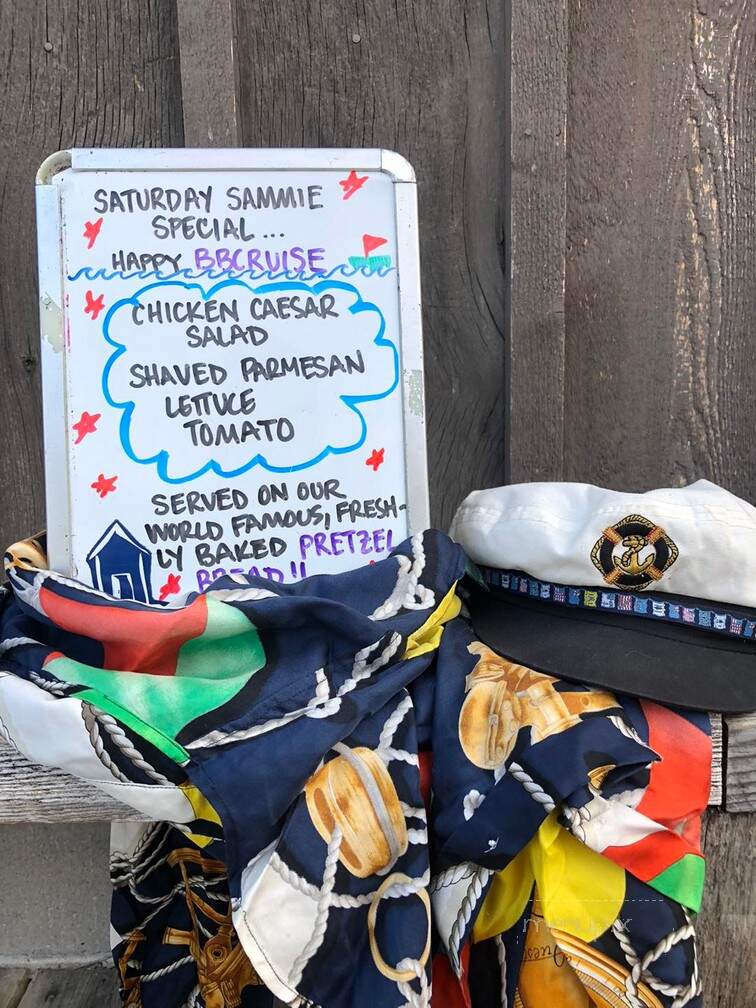 SATURDAY SAMMIE
SPECIAL...
HAPPY BBCRUISE
CHICKEN CAESAR
SALAD
SHAVED PARMESAN
LETTUCE
TOMATO
SERVED ON OUR
WORLD FAMOUS, FRESH-
LY BAKED PRETZEL
BREAD!!